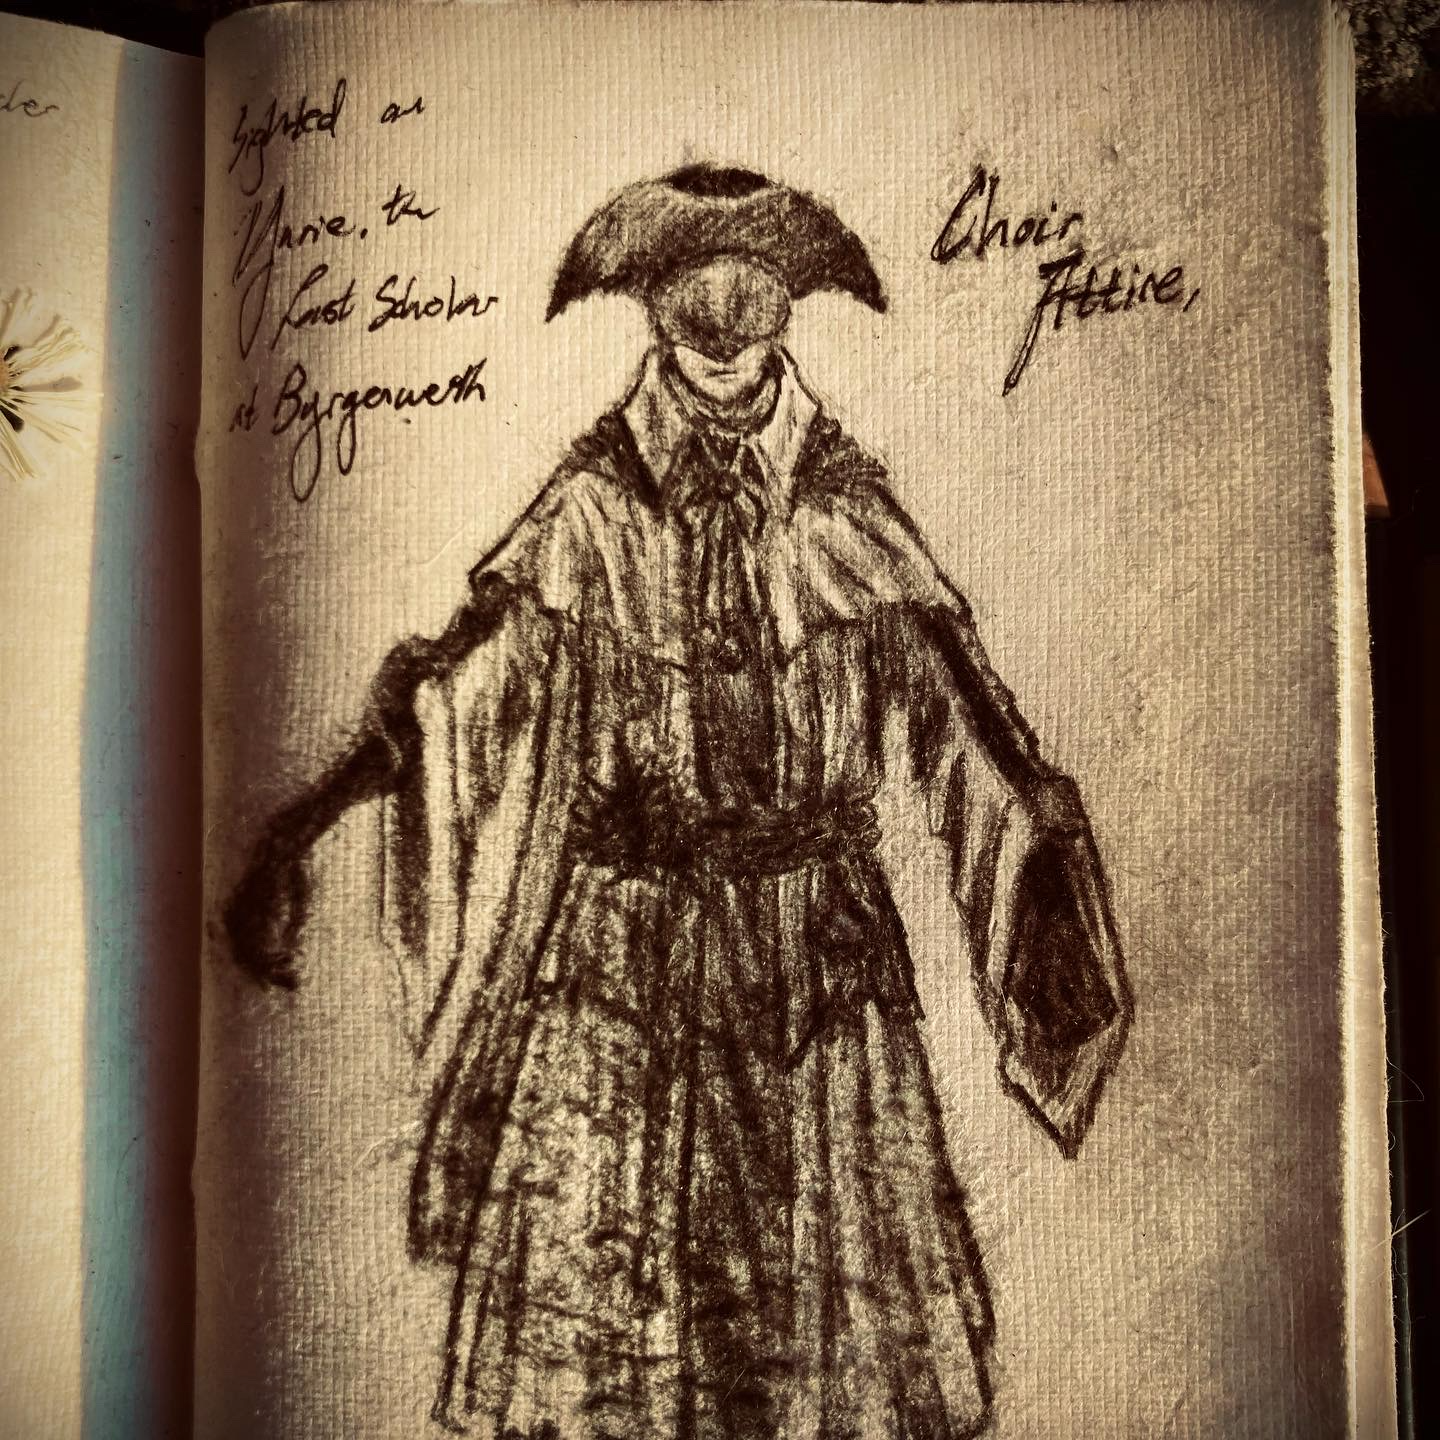 Sighted on
Yurie, the
Last Scholar
at Byrgenwerth
Choir
Attire,